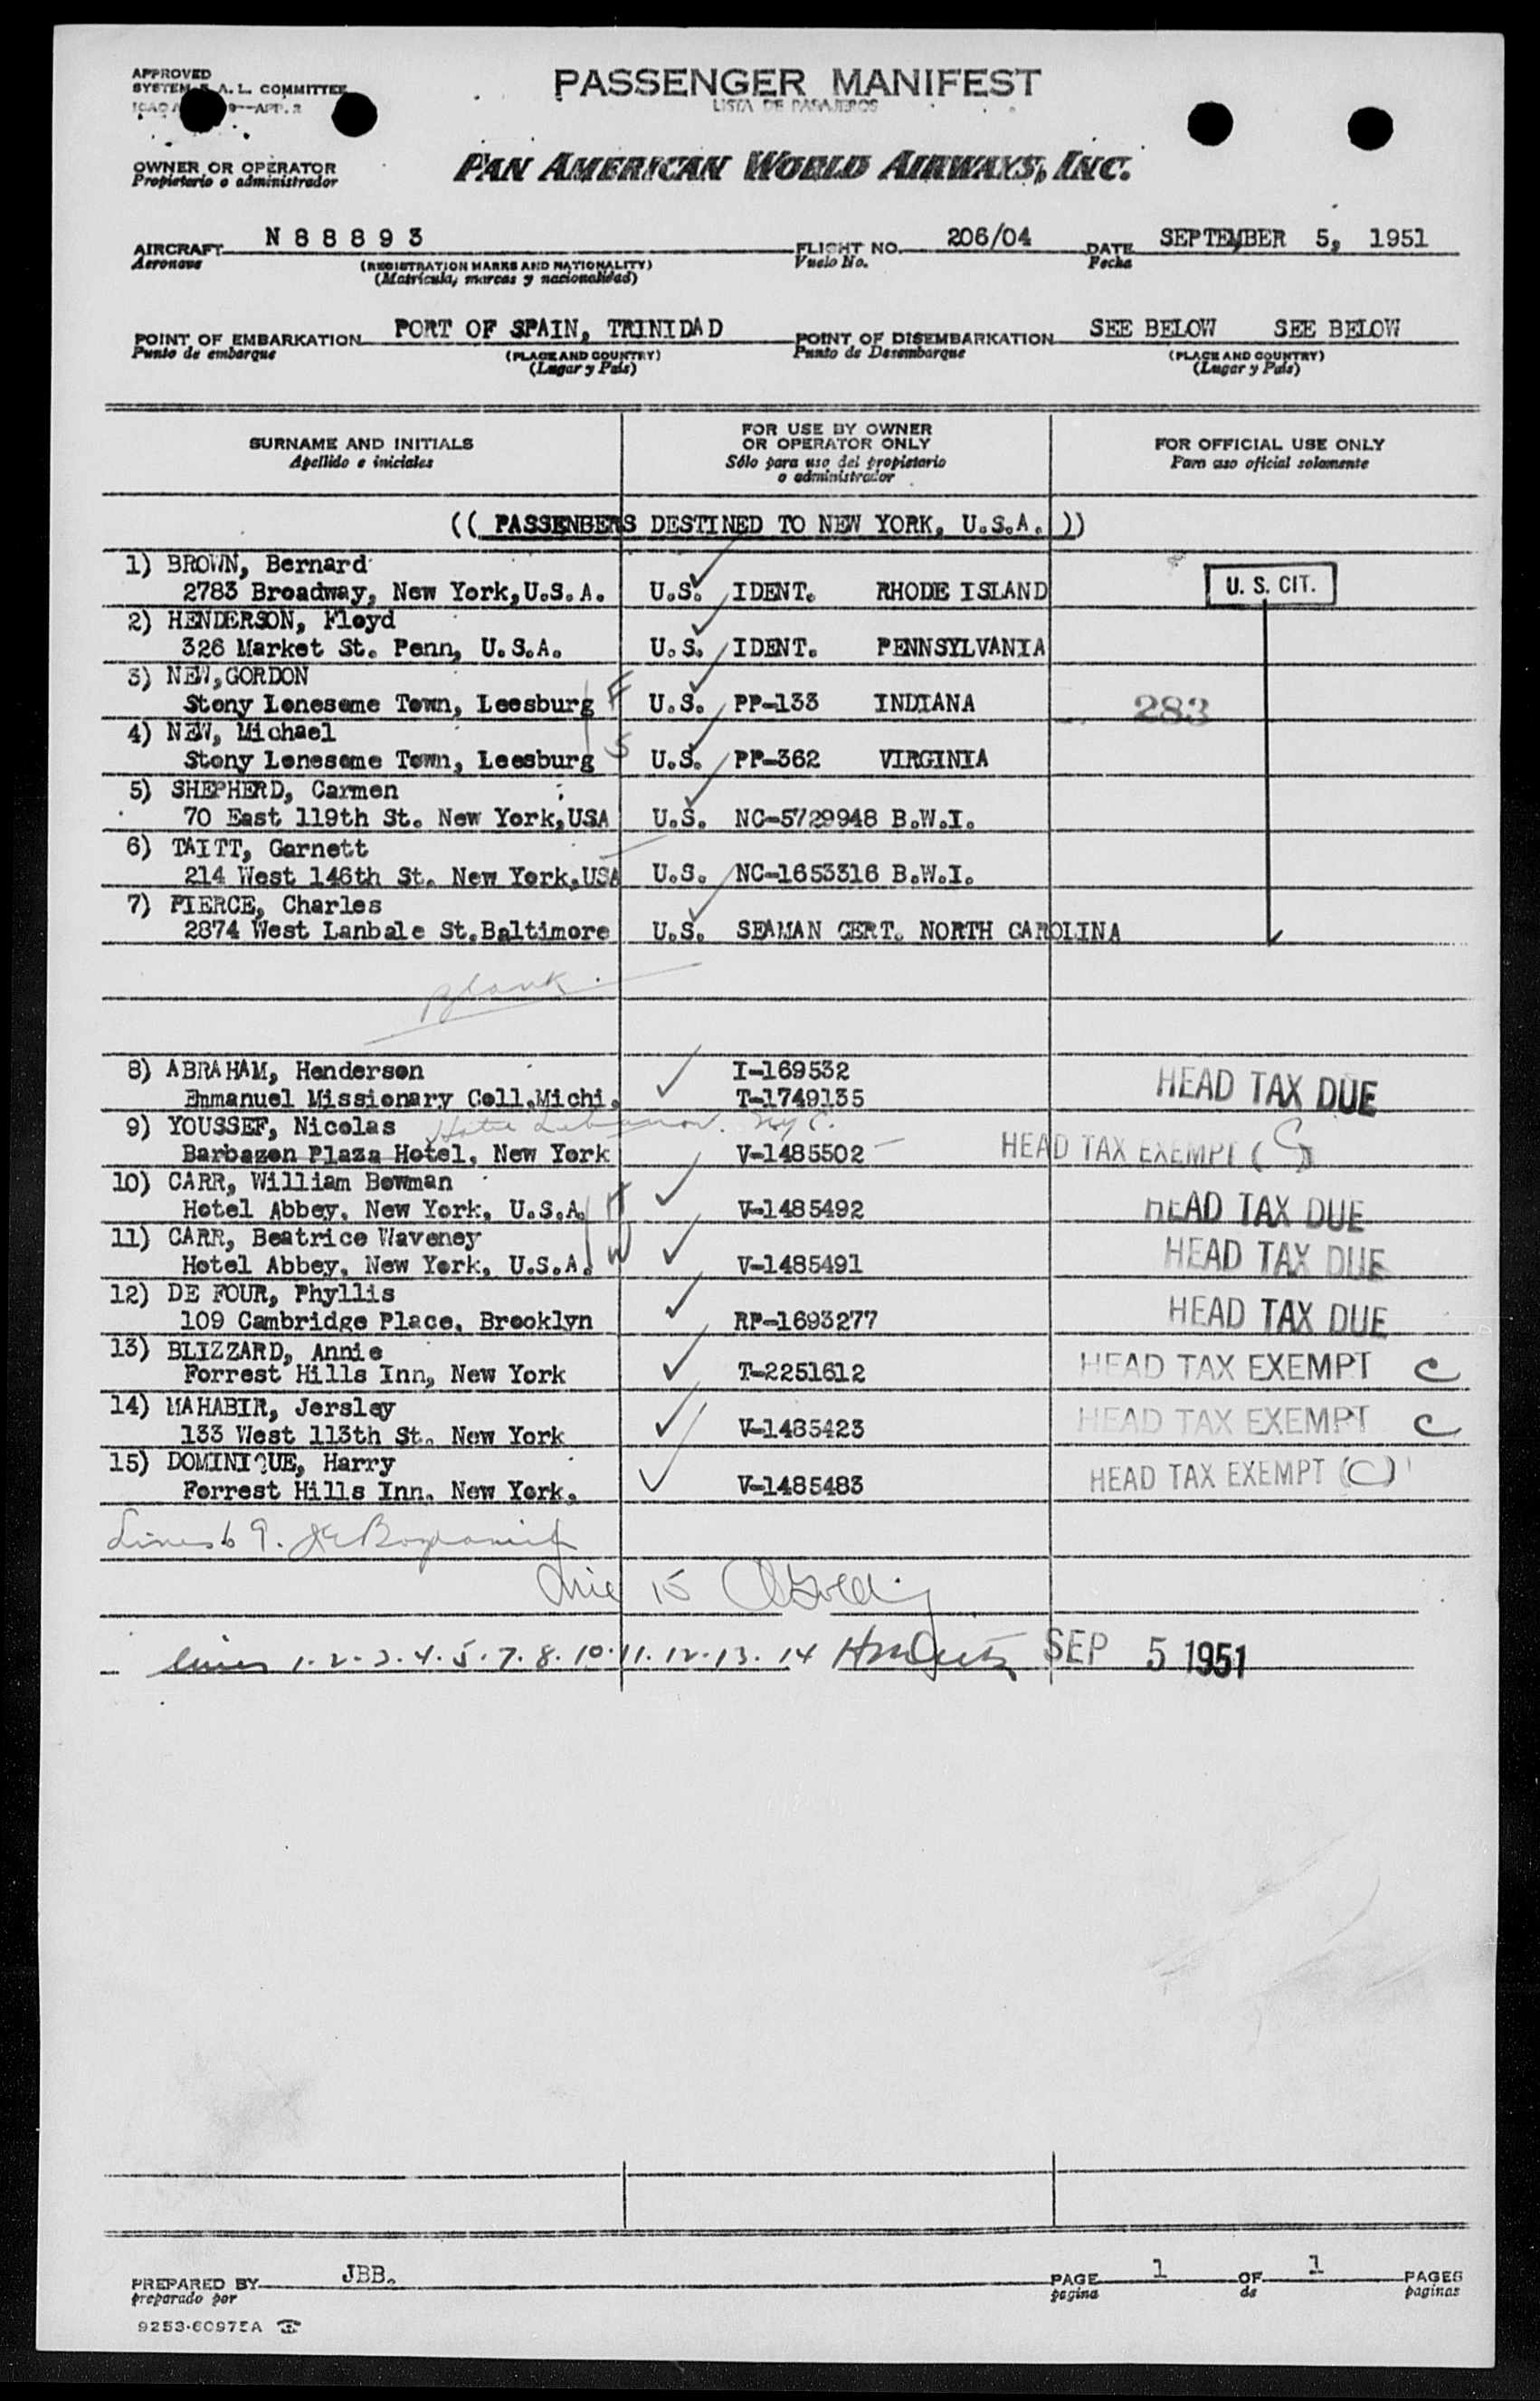 APPROVED
SYSTEM A. L. COMMITTEE
9—APP. 2
PASSENGER MANIFEST
LISTA DE PASAJEROS
OWNER OR OPERATOR
Propietario o administrador
PAN AMERICAN WORLD AIRWAYS, INC.
AIRCRAFT N 8 8 8 9 3 FLIGHT NO. 206/04 DATE SEPTEMBER 5, 1951
Aeronave (REGISTRATION MARKS AND NATIONALITY) Vuelo No. Fecha
(Matrícula, marcas y nacionalidad)
POINT OF EMBARKATION PORT OF SPAIN, TRINIDAD POINT OF DISEMBARKATION SEE BELOW SEE BELOW
Punto de embarque (PLACE AND COUNTRY) Punto de Desembarque (PLACE AND COUNTRY)
(Lugar y País) (Lugar y País)
SURNAME AND INITIALS FOR USE BY OWNER OR OPERATOR ONLY FOR OFFICIAL USE ONLY
Apellido e iniciales Sólo para uso del propietario o administrador Para uso oficial solamente
(( PASSENBERS DESTINED TO NEW YORK, U.S.A. ))
1) BROWN, Bernard
2783 Broadway, New York,U.S.A. U.S. IDENT. RHODE ISLAND U. S. CIT.
2) HENDERSON, Floyd
326 Market St. Penn, U.S.A. U.S. IDENT. PENNSYLVANIA
3) NEW,GORDON
Stony Lonesome Town, Leesburg F U.S. PP-133 INDIANA 283
4) NEW, Michael
Stony Lonesome Town, Leesburg S U.S. PP-362 VIRGINIA
5) SHEPHERD, Carmen
70 East 119th St. New York,USA U.S. NC-5729948 B.W.I.
6) TAITT, Garnett
214 West 146th St. New York,USA U.S. NC-1653316 B.W.I.
7) PIERCE, Charles
2874 West Lanbale St.Baltimore U.S. SEAMAN CERT. NORTH CAROLINA
Blank
8) ABRAHAM, Henderson I-169532
Emmanuel Missionary Coll.Michi. T-1749135 HEAD TAX DUE
9) YOUSSEF, Nicolas Hotel Lebanon. NYC.
Barbazon Plaza Hotel, New York V-1485502 HEAD TAX EXEMPT (C)
10) CARR, William Bowman
Hotel Abbey, New York, U.S.A. H V-1485492 HEAD TAX DUE
11) CARR, Beatrice Waveney
Hotel Abbey, New York, U.S.A. W V-1485491 HEAD TAX DUE
12) DE FOUR, Phyllis
109 Cambridge Place, Brooklyn RP-1693277 HEAD TAX DUE
13) BLIZZARD, Annie
Forrest Hills Inn, New York T-2251612 HEAD TAX EXEMPT C
14) MAHABIR, Jersley
133 West 113th St. New York V-1485423 HEAD TAX EXEMPT C
15) DOMINIQUE, Harry
Forrest Hills Inn, New York. V-1485483 HEAD TAX EXEMPT (C)
Lines 6 9.
Line 15
lines 1.2.3.4.5.7.8.10.11.12.13.14 SEP 5 1951
PREPARED BY JBB. PAGE 1 OF 1 PAGES
preparado por pagina de paginas
9253-60975A